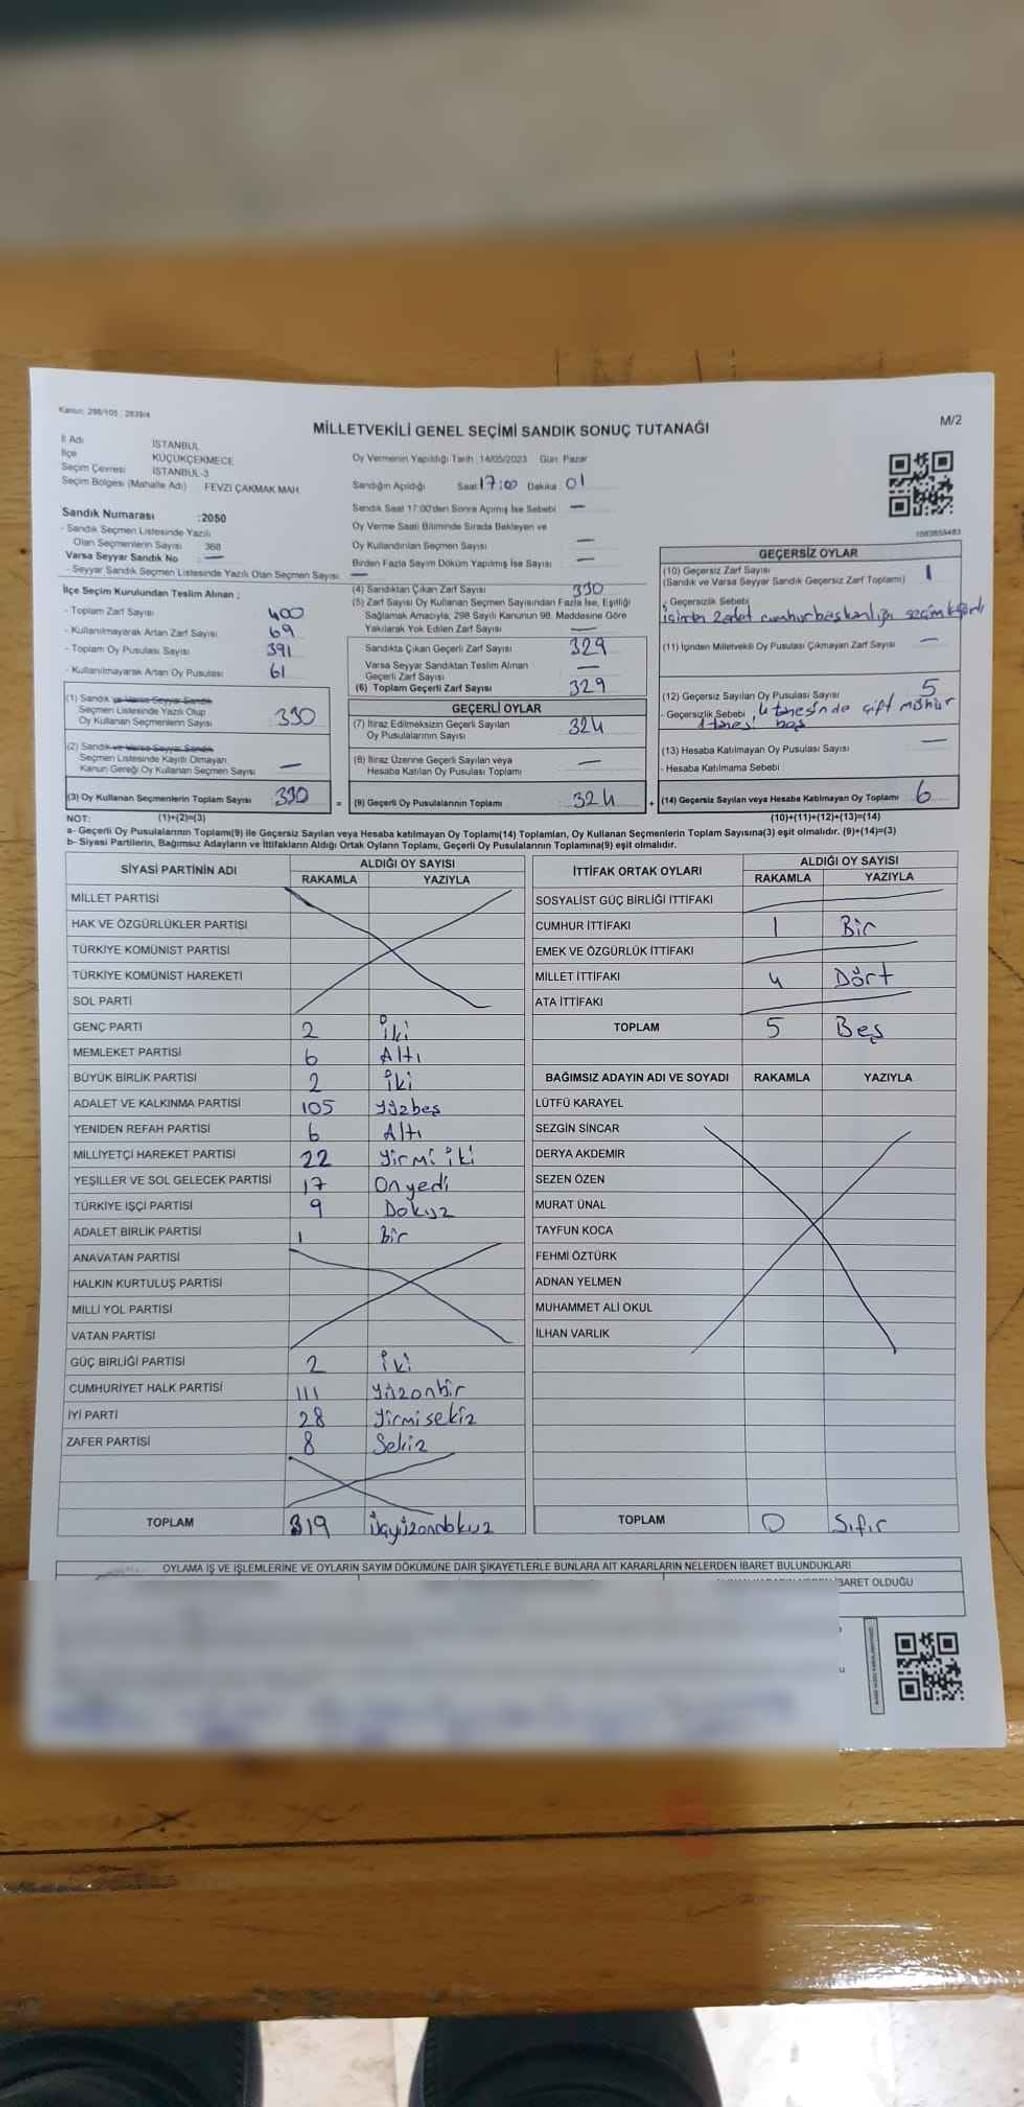 Kanun: 298/105 : 2839/4
M/2
MİLLETVEKİLİ GENEL SEÇİMİ SANDIK SONUÇ TUTANAĞI
İl Adı İSTANBUL
İlçe KÜÇÜKÇEKMECE
Seçim Çevresi İSTANBUL-3
Seçim Bölgesi (Mahalle Adı) FEVZİ ÇAKMAK MAH.
Sandık Numarası :2050
- Sandık Seçmen Listesinde Yazılı
Olan Seçmenlerin Sayısı 368
Varsa Seyyar Sandık No —
- Seyyar Sandık Seçmen Listesinde Yazılı Olan Seçmen Sayısı —
İlçe Seçim Kurulundan Teslim Alınan ;
- Toplam Zarf Sayısı 400
- Kullanılmayarak Artan Zarf Sayısı 69
- Toplam Oy Pusulası Sayısı 391
- Kullanılmayarak Artan Oy Pusulası 61
(1) Sandık ve Varsa Seyyar Sandık
Seçmen Listesinde Yazılı Olup
Oy Kullanan Seçmenlerin Sayısı 330
(2) Sandık ve Varsa Seyyar Sandık
Seçmen Listesinde Kayıtlı Olmayan
Kanun Gereği Oy Kullanan Seçmen Sayısı —
(3) Oy Kullanan Seçmenlerin Toplam Sayısı 330 =
Oy Vermenin Yapıldığı Tarih :14/05/2023 Gün: Pazar
Sandığın Açıldığı Saat 17:00 Dakika 01
Sandık Saat 17:00'den Sonra Açılmış İse Sebebi —
Oy Verme Saati Bitiminde Sırada Bekleyen ve
Oy Kullandırılan Seçmen Sayısı —
Birden Fazla Sayım Döküm Yapılmış İse Sayısı —
(4) Sandıktan Çıkan Zarf Sayısı 330
(5) Zarf Sayısı Oy Kullanan Seçmen Sayısından Fazla İse, Eşitliği
Sağlamak Amacıyla, 298 Sayılı Kanunun 98. Maddesine Göre
Yakılarak Yok Edilen Zarf Sayısı —
Sandıkta Çıkan Geçerli Zarf Sayısı 329
Varsa Seyyar Sandıktan Teslim Alınan
Geçerli Zarf Sayısı —
(6) Toplam Geçerli Zarf Sayısı 329
GEÇERLİ OYLAR
(7) İtiraz Edilmeksizin Geçerli Sayılan
Oy Pusulalarının Sayısı 324
(8) İtiraz Üzerine Geçerli Sayılan veya
Hesaba Katılan Oy Pusulası Toplamı —
(9) Geçerli Oy Pusulalarının Toplamı 324 +
1083855483
GEÇERSİZ OYLAR
(10) Geçersiz Zarf Sayısı 1
(Sandık ve Varsa Seyyar Sandık Geçersiz Zarf Toplamı)
- Geçersizlik Sebebi
içinden 2 adet cumhurbaşkanlığı seçim
(11) İçinden Milletvekili Oy Pusulası Çıkmayan Zarf Sayısı —
(12) Geçersiz Sayılan Oy Pusulası Sayısı 5
- Geçersizlik Sebebi, 4 tanesinde çift mühür
1 tanesi boş
(13) Hesaba Katılmayan Oy Pusulası Sayısı —
- Hesaba Katılmama Sebebi
(14) Geçersiz Sayılan veya Hesaba Katılmayan Oy Toplamı 6
NOT: (1)+(2)=(3) (10)+(11)+(12)+(13)=(14)
a- Geçerli Oy Pusulalarının Toplamı(9) ile Geçersiz Sayılan veya Hesaba katılmayan Oy Toplamı(14) Toplamları, Oy Kullanan Seçmenlerin Toplam Sayısına(3) eşit olmalıdır. (9)+(14)=(3)
b- Siyasi Partilerin, Bağımsız Adayların ve İttifakların Aldığı Ortak Oyların Toplamı, Geçerli Oy Pusulalarının Toplamına(9) eşit olmalıdır.
SİYASİ PARTİNİN ADI ALDIĞI OY SAYISI
RAKAMLA YAZIYLA
MİLLET PARTİSİ
HAK VE ÖZGÜRLÜKLER PARTİSİ
TÜRKİYE KOMÜNİST PARTİSİ
TÜRKİYE KOMÜNİST HAREKETİ
SOL PARTİ
GENÇ PARTİ 2 iki
MEMLEKET PARTİSİ 6 Altı
BÜYÜK BİRLİK PARTİSİ 2 iki
ADALET VE KALKINMA PARTİSİ 105 yüzbeş
YENİDEN REFAH PARTİSİ 6 Altı
MİLLİYETÇİ HAREKET PARTİSİ 22 yirmi iki
YEŞİLLER VE SOL GELECEK PARTİSİ 17 Onyedi
TÜRKİYE İŞÇİ PARTİSİ 9 Dokuz
ADALET BİRLİK PARTİSİ 1 Bir
ANAVATAN PARTİSİ
HALKIN KURTULUŞ PARTİSİ
MİLLİ YOL PARTİSİ
VATAN PARTİSİ
GÜÇ BİRLİĞİ PARTİSİ 2 iki
CUMHURİYET HALK PARTİSİ 111 yüzonbir
İYİ PARTİ 28 yirmisekiz
ZAFER PARTİSİ 8 Sekiz
TOPLAM 319 üçyüzondokuz
İTTİFAK ORTAK OYLARI ALDIĞI OY SAYISI
RAKAMLA YAZIYLA
SOSYALİST GÜÇ BİRLİĞİ İTTİFAKI
CUMHUR İTTİFAKI 1 Bir
EMEK VE ÖZGÜRLÜK İTTİFAKI
MİLLET İTTİFAKI 4 Dört
ATA İTTİFAKI
TOPLAM 5 Beş
BAĞIMSIZ ADAYIN ADI VE SOYADI RAKAMLA YAZIYLA
LÜTFÜ KARAYEL
SEZGİN SİNCAR
DERYA AKDEMİR
SEZEN ÖZEN
MURAT ÜNAL
TAYFUN KOCA
FEHMİ ÖZTÜRK
ADNAN YELMEN
MUHAMMET ALİ OKUL
İLHAN VARLIK
TOPLAM 0 Sıfır
OYLAMA İŞ VE İŞLEMLERİNE VE OYLARIN SAYIM DÖKÜMÜNE DAİR ŞİKAYETLERLE BUNLARA AİT KARARLARIN NELERDEN İBARET BULUNDUKLARI
BARET OLDUĞU